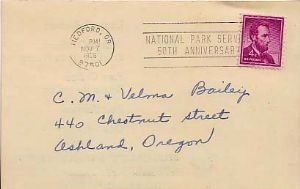 MEDFORD, OR
PM
NOV 7
1966
97501
NATIONAL PARK SERV
50TH ANNIVERSAR
4¢
C. M & Velma Bailey
440 Chestnut street
Ashland, Oregon